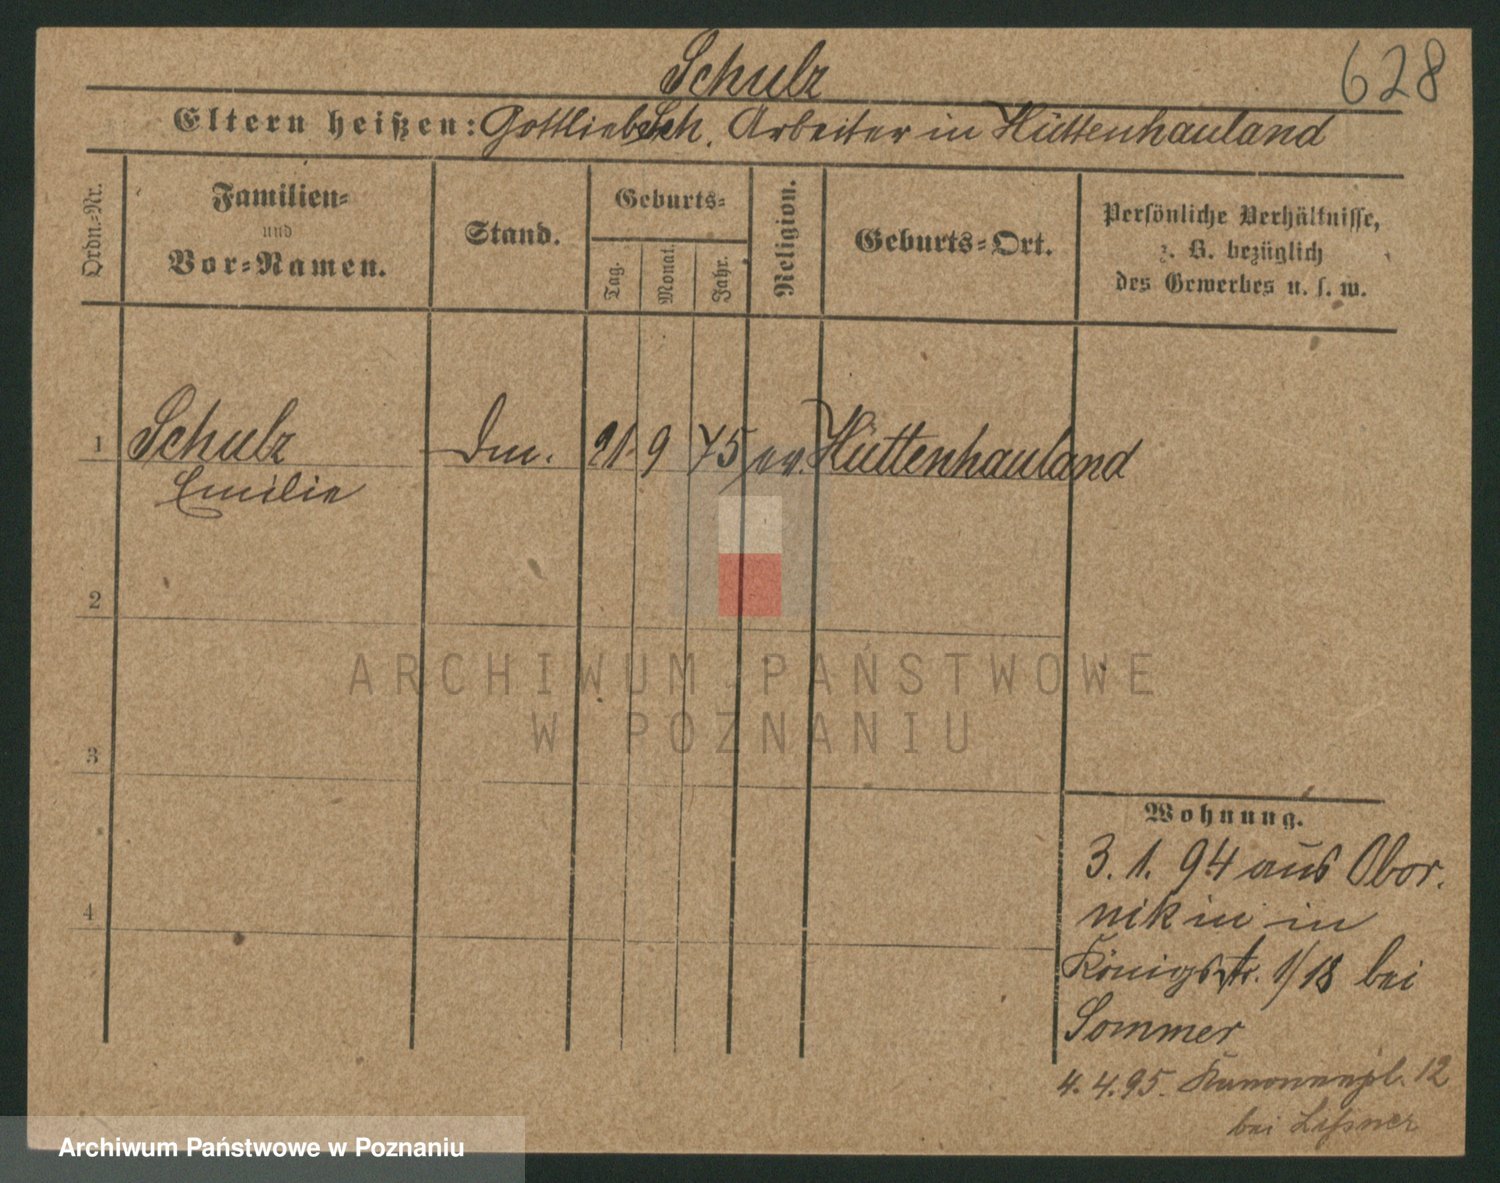 628
Schulz
Eltern heißen: Gottlieb Sch. Arbeiter in Hüttenhauland
Ordn.=Nr.
Familien=
und
Vor=Namen.
Stand.
Geburts=
Tag.
Monat.
Jahr.
Religion.
Geburts=Ort.
Persönliche Verhältnisse,
z. B. bezüglich
des Gewerbes u. s. w.
1 Schulz Dm. 21 9 75 ev. Hüttenhauland
Emilie
2
3
4
Wohnung.
3. 1. 94 aus Obor.
nik in in
Königstr. 1/18 bei
Sommer
4. 4. 95. 12
bei
ARCHIWUM PAŃSTWOWE
W POZNANIU
Archiwum Państwowe w Poznaniu